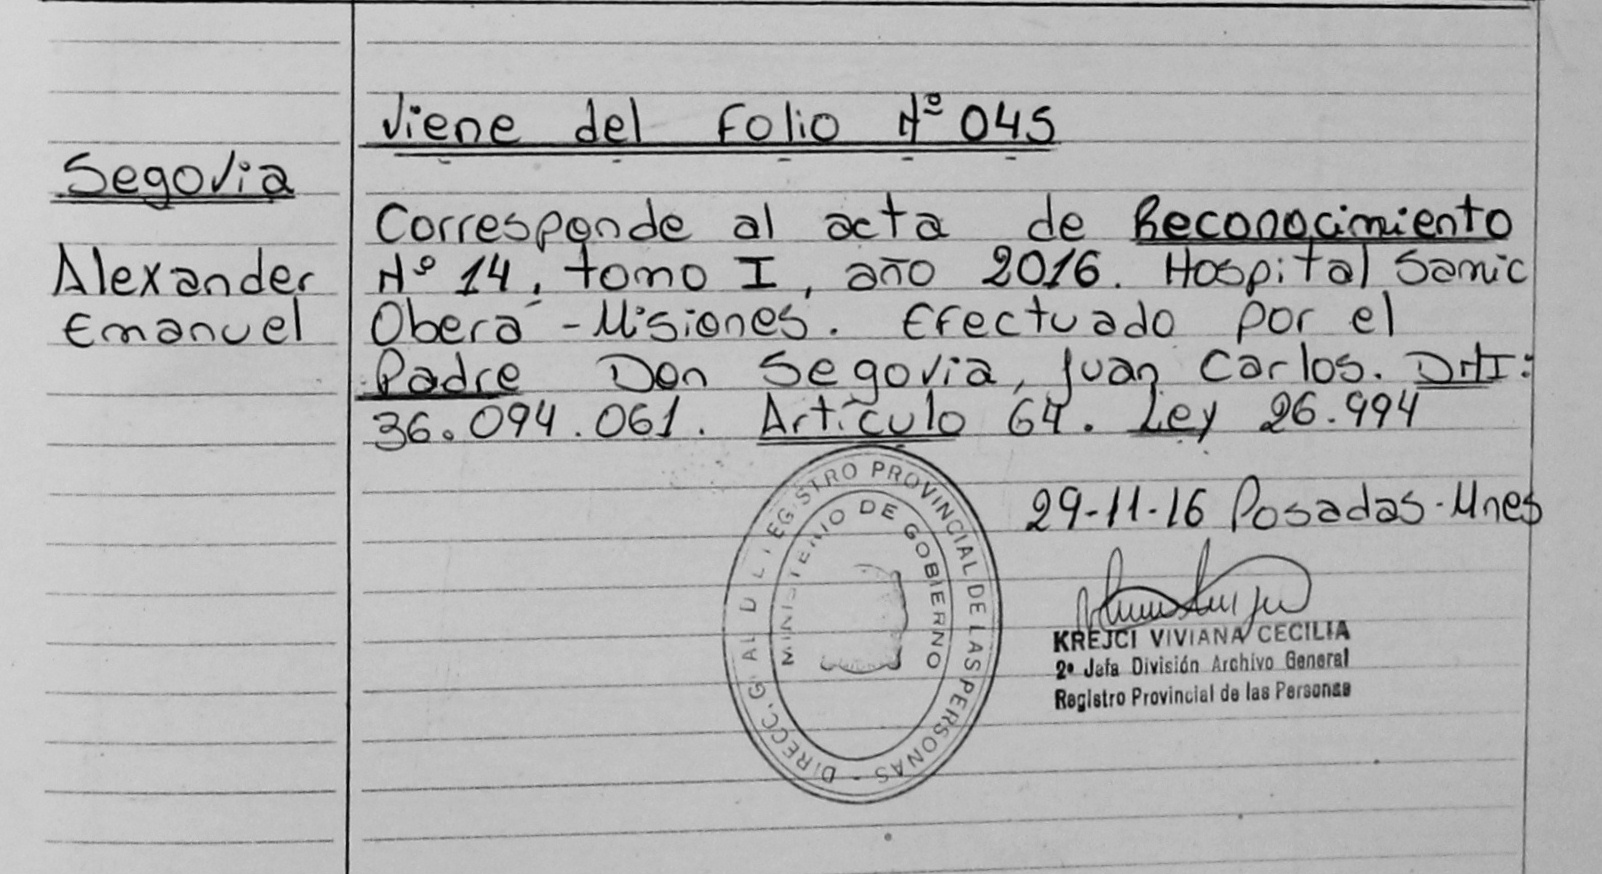 Viene del Folio Nº 045
Segovia
Alexander
Emanuel
Corresponde al acta de Reconocimiento
Nº 14, tomo I, año 2016. Hospital Samic
Oberá - Misiones. Efectuado por el
Padre Don Segovia, Juan Carlos. DNI:
36.094.061. Artículo 64. Ley 26.994
29-11-16 Posadas-Mnes
DIRECC. GRAL DEL REGISTRO PROVINCIAL DE LAS PERSONAS -
MINISTERIO DE GOBIERNO
KREJCI VIVIANA CECILIA
2º Jefa División Archivo General
Registro Provincial de las Personas